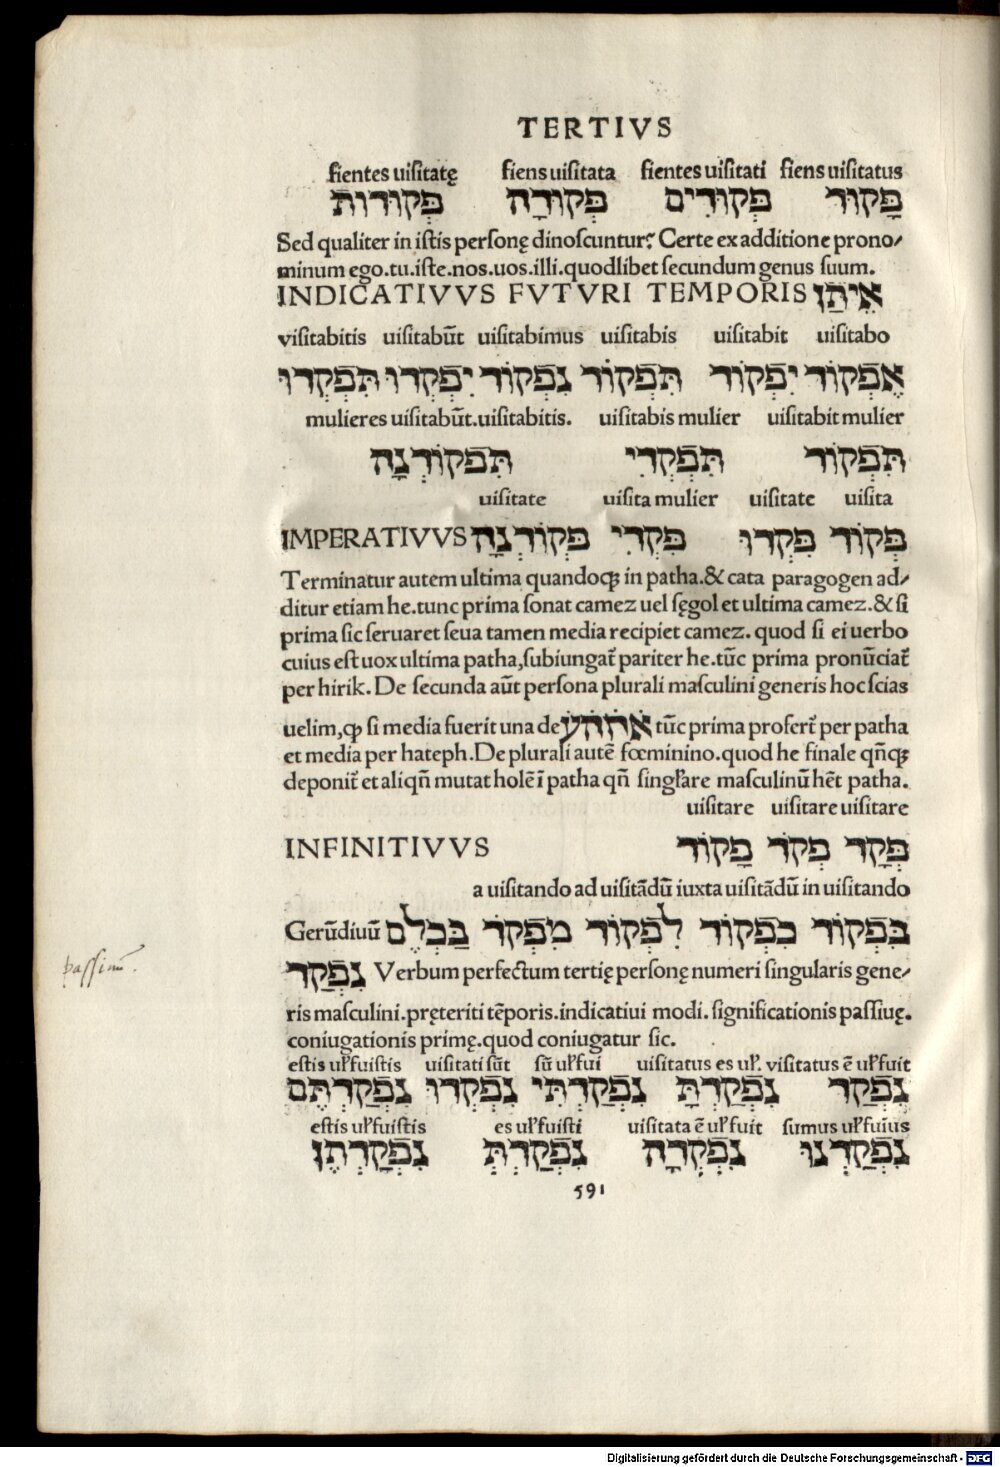 TERTIVS
fientes uisitatę fiens uisitata fientes uisitati fiens uisitatus
פָּקוּד פְּקוּדִים פְּקוּדָה פְּקוּדוֹת
Sed qualiter in istis personę dinoscuntur? Certe ex additione prono/
minum ego.tu.iste.nos.uos.illi.quodlibet secundum genus suum.
INDICATIVVS FVTVRI TEMPORIS אֵיתַן
visitabitis uisitabūt uisitabimus uisitabis uisitabit uisitabo
אֶפְקוֹד יִפְקוֹד תִּפְקוֹד נִפְקוֹד יִפְקְדוּ תִּפְקְדוּ
mulieres uisitabūt.uisitabitis. uisitabis mulier uisitabit mulier
תִּפְקוֹד תִּפְקְדִי תִּפְקוֹדְנָה
uisitate uisita mulier uisitate uisita
IMPERATIVVS פְּקוֹד פִּקְדוּ פִּקְדִי פְּקוֹדְנָה
Terminatur autem ultima quandoqꝫ in patha.& cata paragogen ad/
ditur etiam he.tunc prima sonat camez uel sęgol et ultima camez.& si
prima sic seruaret seua tamen media recipiet camez. quod si ei uerbo
cuius est uox ultima patha,subiungat᷑ pariter he.tūc prima pronūciat᷑
per hirik. De secunda aūt persona plurali masculini generis hoc scias
uelim,ꝙ si media fuerit una de אֹהֹחֹעֹ tūc prima profert᷑ per patha
et media per hateph.De plurali autē fœminino.quod he finale qñqꝫ
deponit᷑ et aliqñ mutat holē ī patha qñ singl̃are masculinū hēt patha.
uisitare uisitare uisitare
INFINITIVVS פְּקָד פְּקֹד פָּקוֹד
a uisitando ad uisitādū iuxta uisitādū in uisitando
Gerūdiuū בִּפְקוֹד כִּפְקוֹד לִפְקוֹד מִפְקֹד בַּכְלֶם
passiuū.
נִפְקַד Verbum perfectum tertię personę numeri singularis gene/
ris masculini.pręteriti tēporis.indicatiui modi.significationis passiuę.
coniugationis primę.quod coniugatur sic.
estis ul̃ fuistis uisitati sūt sū ul̃ fui uisitatus es ul̃. visitatus ē ul̃ fuit
נִפְקַד נִפְקַדְתָּ נִפְקַדְתִּי נִפְקְדוּ נִפְקַדְתֶּם
estis ul̃ fuistis es ul̃ fuisti uisitata ē ul̃ fuit sumus ul̃ fuīus
נִפְקַדְנוּ נִפְקְדָה נִפְקַדְתְּ נִפְקַדְתֶּן
591
Digitalisierung gefördert durch die Deutsche Forschungsgemeinschaft - DFG